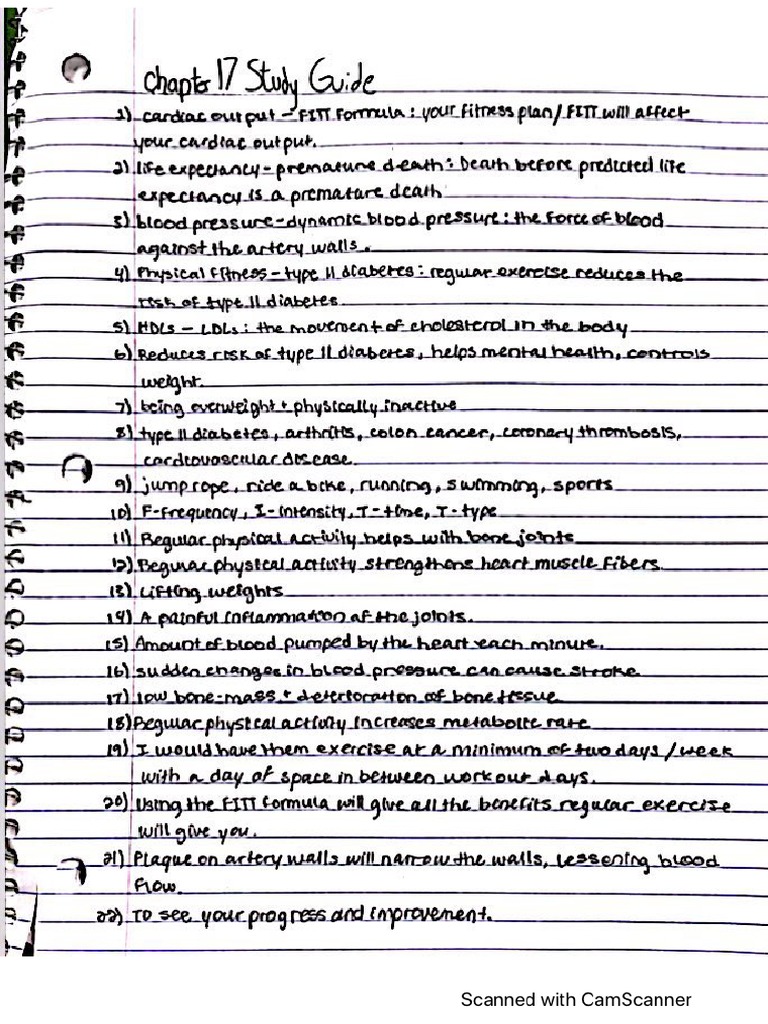 Chapter 17 Study Guide
1) cardiac output - FITT Formula : your fitness plan/FITT will affect
your cardiac output.
2) life expectancy - premature death : Death before predicted life
expectancy is a premature death
3) blood pressure - dynamic blood pressure : the force of blood
against the artery walls.
4) Physical Fitness - type II diabetes : regular exercise reduces the
risk of type II diabetes
5) HDLs - LDLs : the movement of cholesterol in the body
6) Reduces risk of type II diabetes, helps mental health, controls
weight.
7) being overweight + physically inactive
8) type II diabetes, arthritis, colon cancer, coronary thrombosis,
cardiovascular disease.
9) jump rope, ride a bike, running, swimming, sports
10) F-frequency, I-intensity, T-time, T-type
11) Regular physical activity helps with bone joints
12) Regular physical activity strengthens heart muscle fibers.
13) Lifting weights
14) A painful inflammation of the joints.
15) Amount of blood pumped by the heart each minute.
16) sudden changes in blood pressure can cause stroke
17) low bone-mass + deterioration of bone tissue
18) Regular physical activity increases metabolic rate
19) I would have them exercise at a minimum of two days/week
with a day of space in between workout days.
20) Using the FITT formula will give all the benefits regular exercise
will give you.
21) Plaque on artery walls will narrow the walls, lessening blood
flow
22) To see your progress and improvement.
Scanned with CamScanner